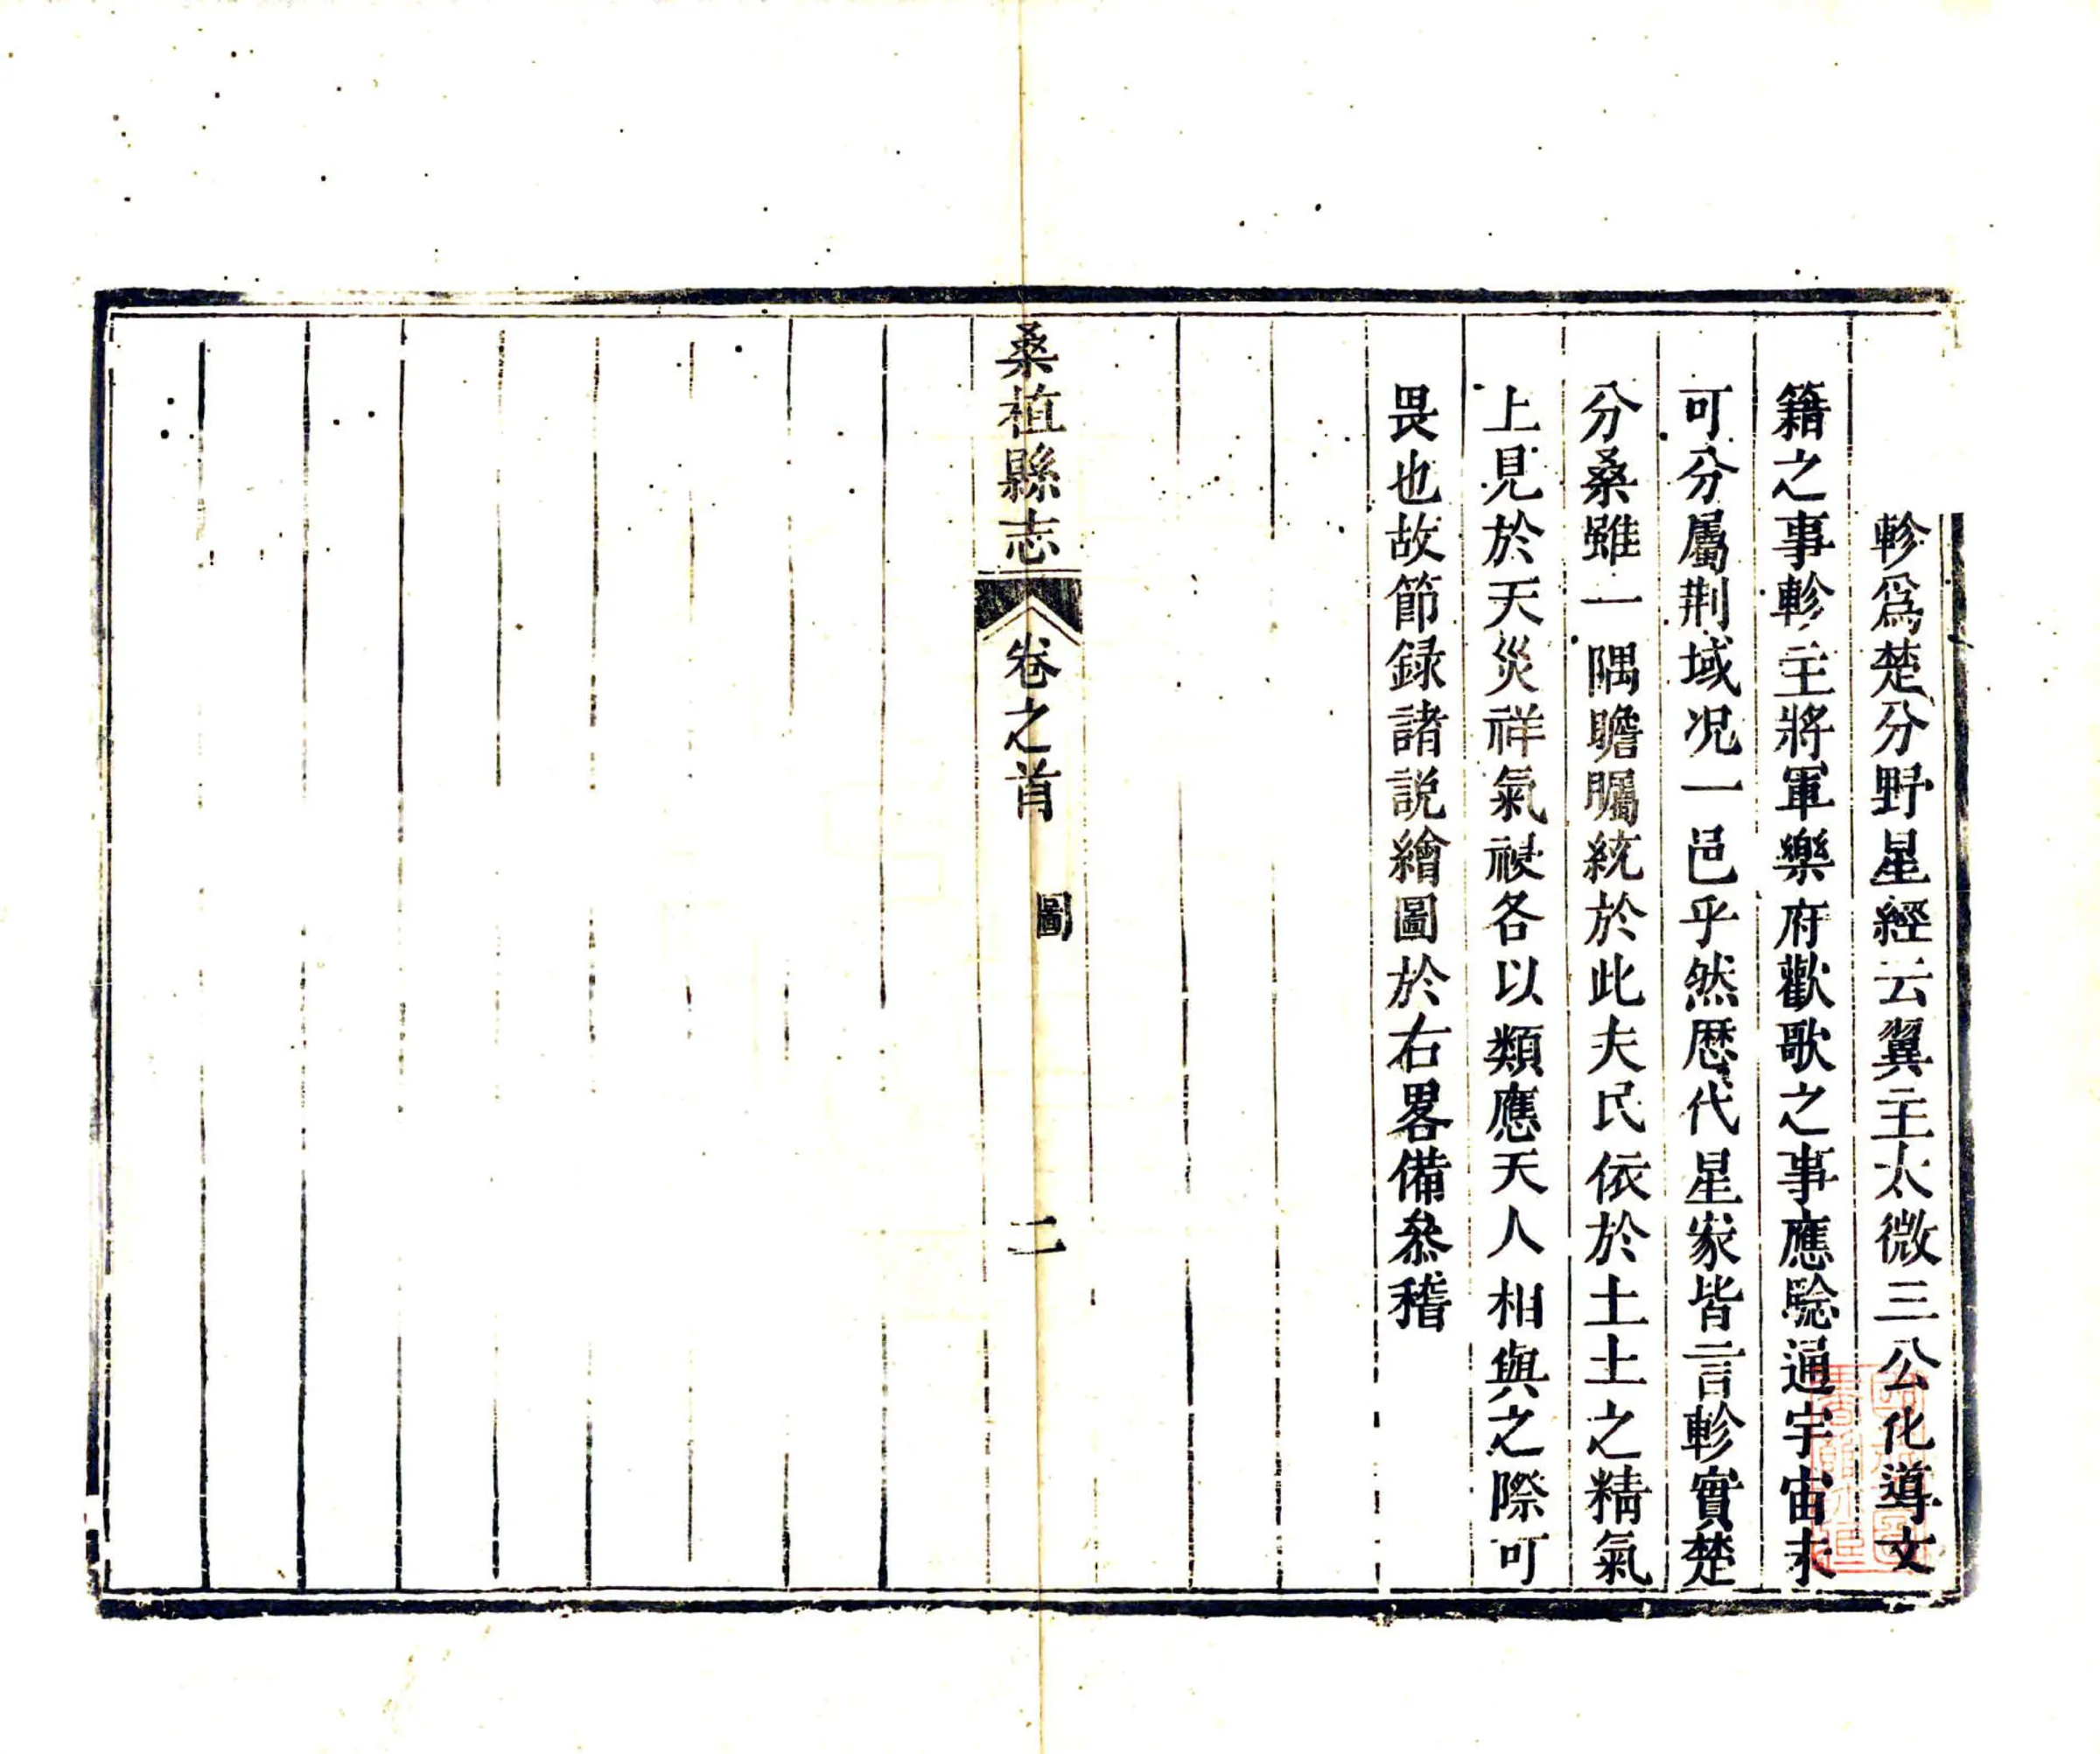 軫爲楚分野星經云翼主太微三公化導文
籍之事軫主將軍樂府歡歌之事應騐通宇宙未
可分屬荆域况一邑乎然歴代星家皆言軫實楚
分桑雖一隅瞻矚統於此夫民依於土土之精氣
上見於天災祥氣祲各以類應天人相與之際可
畏也故節録諸説繪圖於右畧備叅稽
桑植縣志
卷之首
圖
二